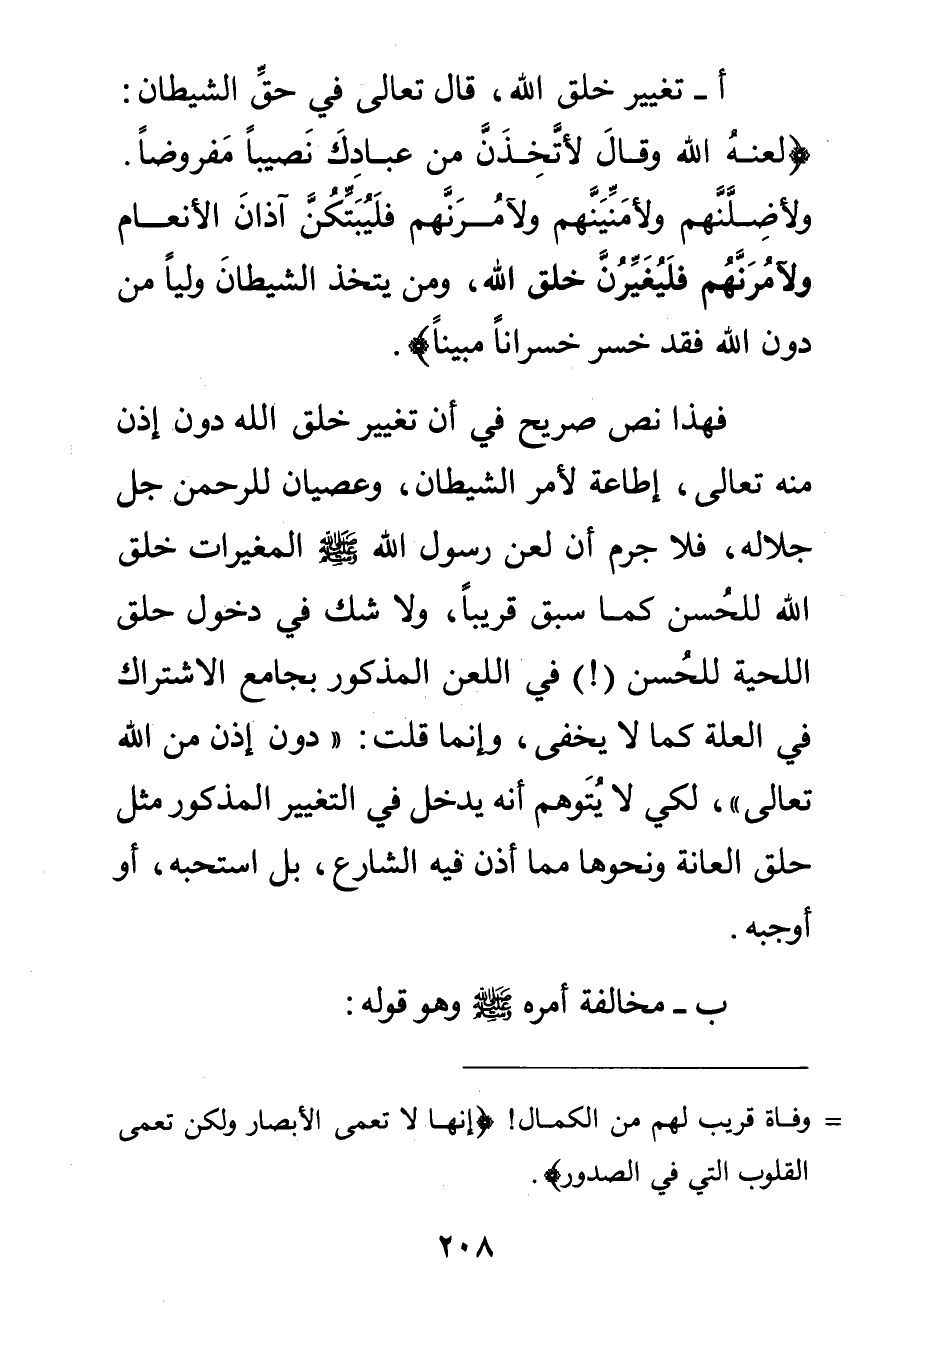 أ ـ تغيير خلق الله، قال تعالى في حقِّ الشيطان:
﴿لعنهُ الله وقالَ لأتَّخِذَنَّ من عبادِكَ نَصيباً مَفروضاً.
ولأضِلَّنَّهم ولأمَنِّيَنَّهم ولآمُرَنَّهم فلَيُبَتِّكُنَّ آذانَ الأنعام
ولآمُرَنَّهُم فلَيُغَيِّرُنَّ خلق الله، ومن يتخذ الشيطانَ ولياً من
دون الله فقد خسر خسراناً مبيناً﴾.
فهذا نص صريح في أن تغيير خلق الله دون إذن
منه تعالى، إطاعة لأمر الشيطان، وعصيان للرحمن جل
جلاله، فلا جرم أن لعن رسول الله ﷺ المغيرات خلق
الله للحُسن كما سبق قريباً، ولا شك في دخول حلق
اللحية للحُسن (!) في اللعن المذكور بجامع الاشتراك
في العلة كما لا يخفى، وإنما قلت: «دون إذن من الله
تعالى»، لكي لا يُتَوهم أنه يدخل في التغيير المذكور مثل
حلق العانة ونحوها مما أذن فيه الشارع، بل استحبه، أو
أوجبه.
ب ـ مخالفة أمره ﷺ وهو قوله:
= وفاة قريب لهم من الكمال! ﴿إنها لا تعمى الأبصار ولكن تعمى
القلوب التي في الصدور﴾.
٢٠٨